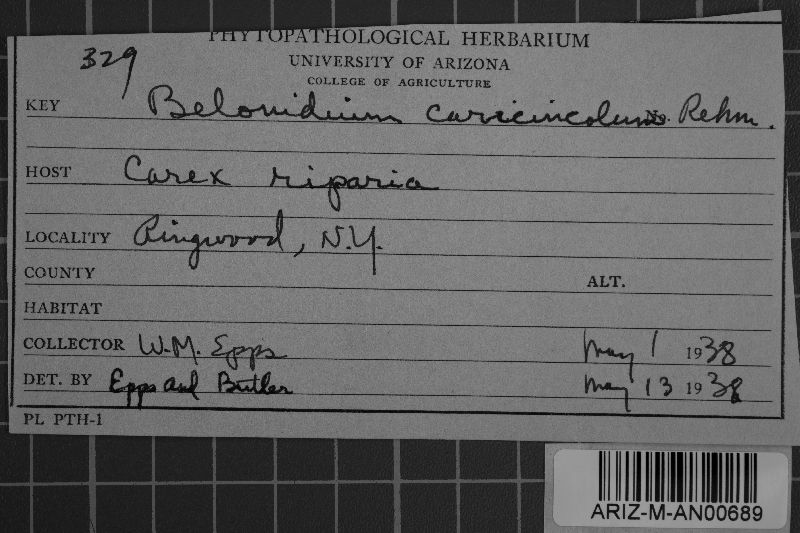 329
PHYTOPATHOLOGICAL HERBARIUM
UNIVERSITY OF ARIZONA
COLLEGE OF AGRICULTURE
KEY Belonidium caricincolum Rehm.
HOST Carex riparia
LOCALITY Ringwood, N.Y.
COUNTY ALT.
HABITAT
COLLECTOR W.M. Epps May 1 1938
DET. BY Epps and Butler May 13 1938
PL PTH-1
ARIZ-M-AN00689